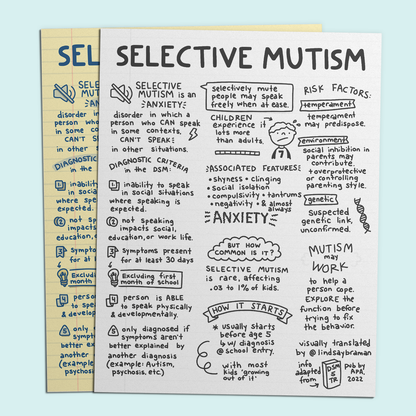 SELECTIVE MUTISM
SELECTIVE
MUTISM is an
ANXIETY
disorder in which a
person who CAN speak
in some contexts,
CAN'T SPEAK
in other situations.
DIAGNOSTIC CRITERIA
in the DSM:
1 inability to speak
in social situations
where speaking is
expected.
2 not speaking
impacts social,
education, or work life.
3 symptoms present
for at least 30 days
Excluding first
month of school
4 person is ABLE
to speak physically
& developmentally.
5 only diagnosed if
symptoms aren't
better explained by
another diagnosis
(example: Autism,
psychosis, etc.)
selectively mute
people may speak
freely when at ease.
CHILDREN
experience it
lots more
than adults.
ASSOCIATED FEATURES
• shyness • clinging
• social isolation
• compulsivity • tantrums
• negativity • & almost
always
ANXIETY
BUT HOW
COMMON IS IT?
SELECTIVE MUTISM
is rare, affecting
.03 to 1% of kids.
HOW IT STARTS
* usually starts
before age 5
↳ w/ diagnosis
@ school entry.
with most
kids "growing
out of it"
RISK FACTORS:
temperament
temperament
may predispose.
environment
social inhibition in
parents may
contribute.
+ overprotective
or controlling
parenting style.
genetic
Suspected
genetic link,
unconfirmed.
MUTISM
may
WORK
to help a
person cope.
EXPLORE the
function before
trying to fix
the behavior.
visually translated
by @lindsaybraman
info
adapted
from
DSM
5
TR
pub by
APA,
2022
SELEC
SELEC
MUTI
ANX
disorder
person wh
in some
CAN'T
in other
DIAGNOSTIC
in the
1 inabili
in social
where sp
expected.
2 not s
impacts
education,
3 sympt
for at le
Excluding
month o
4 perso
to speak
& develop
5 only
symptom
better ex
another
(example
psychosis